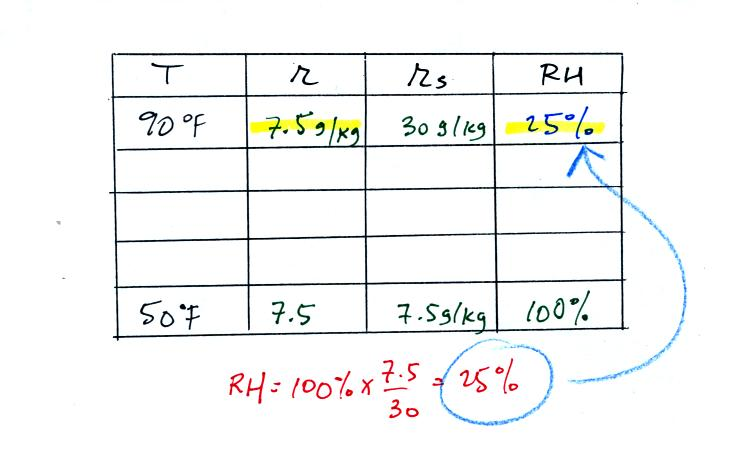 T r rs RH
90°F 7.5g/kg 30 g/kg 25%
50°F 7.5 7.5g/kg 100%
RH = 100% x 7.5/30 = 25%